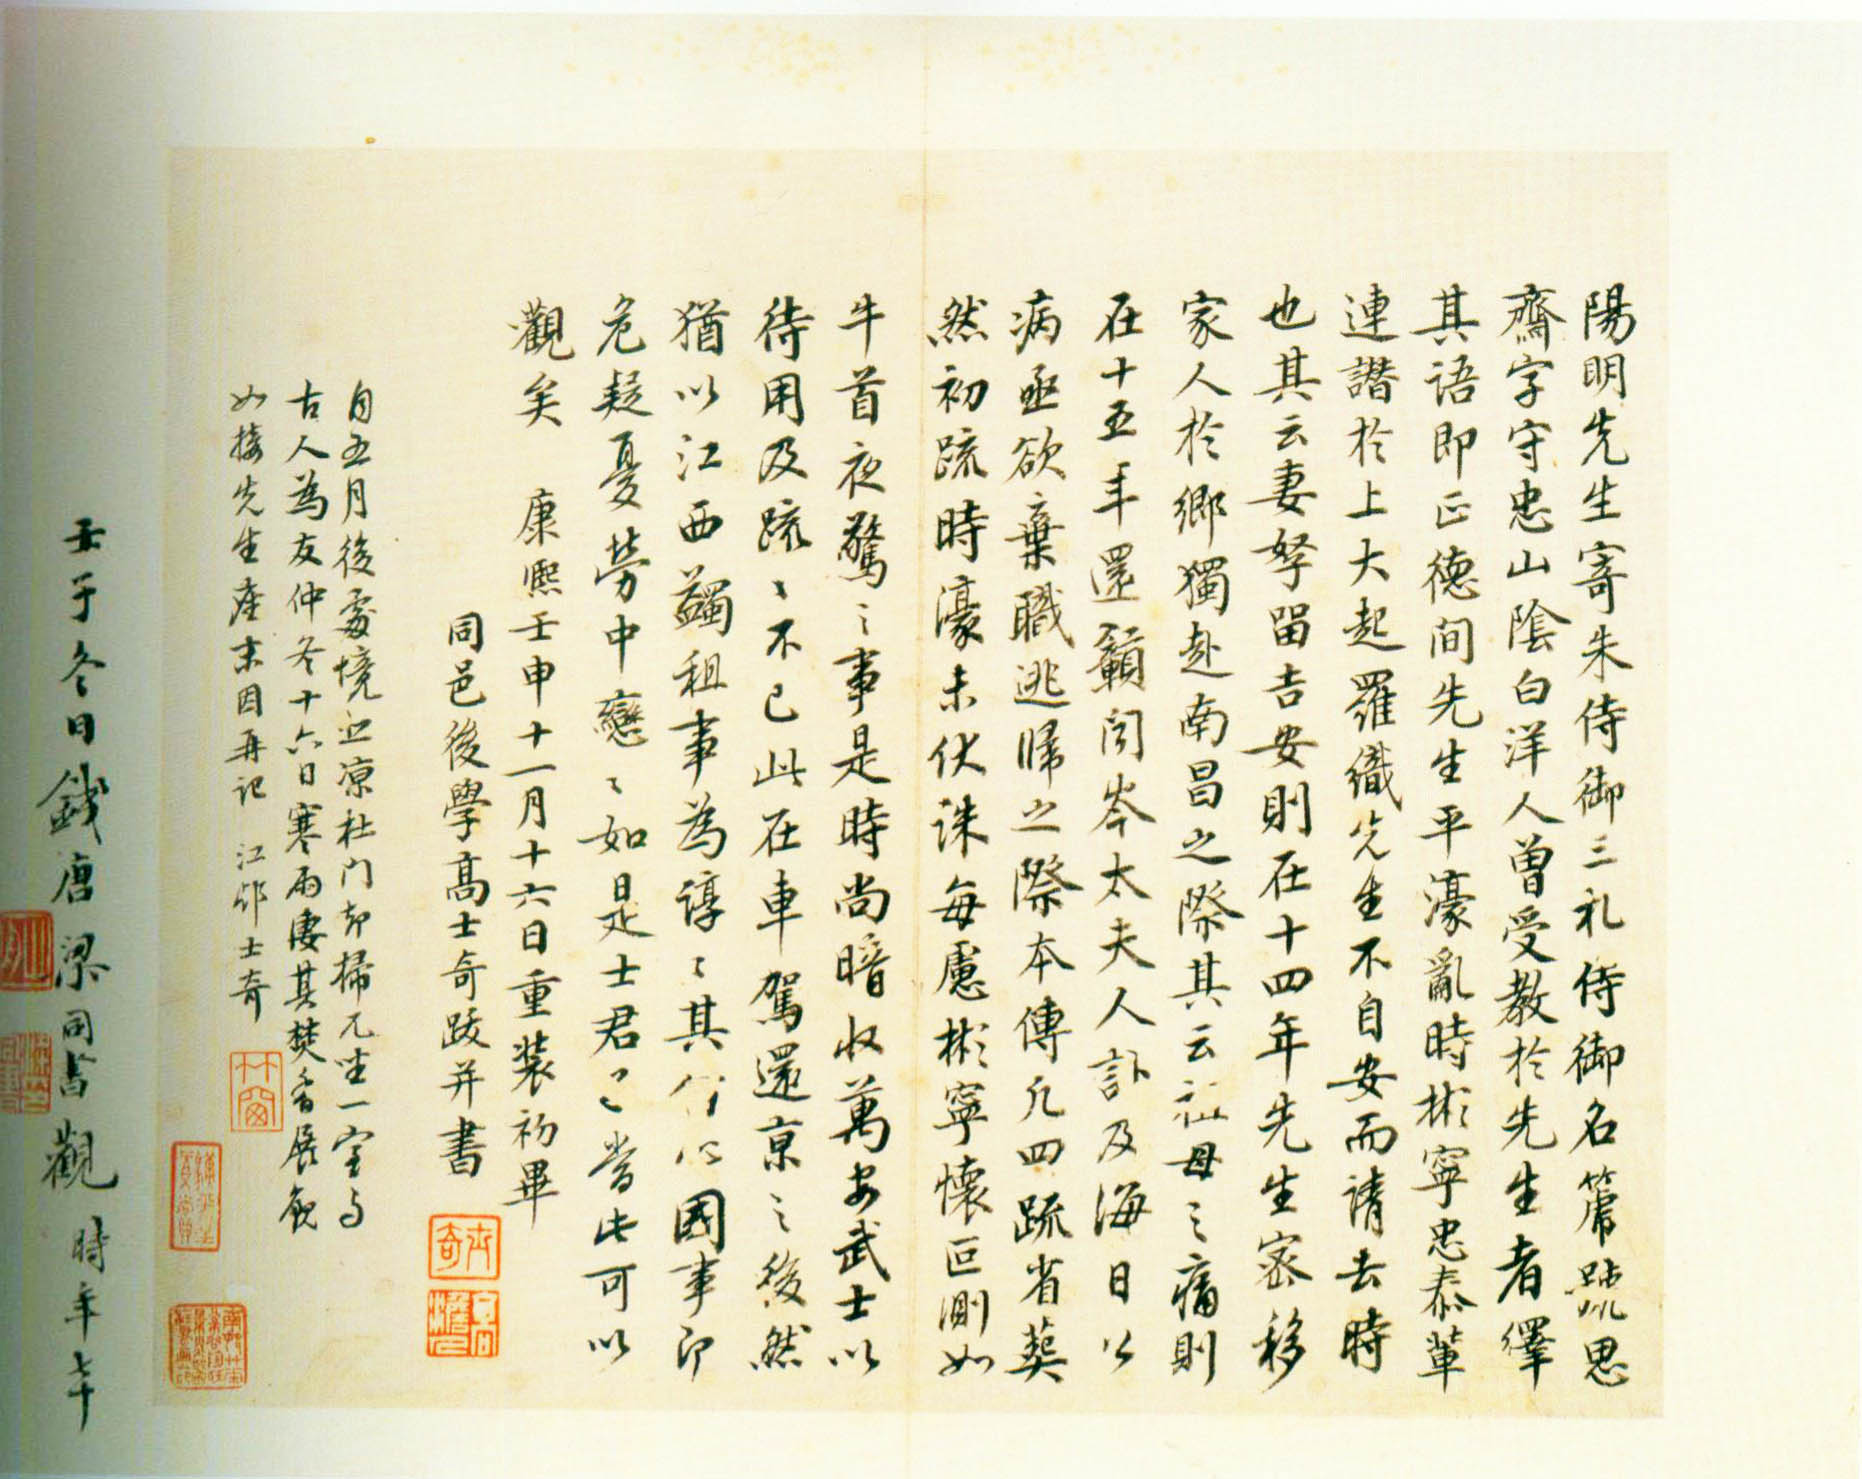 陽明先生寄朱侍御三札侍御名節號思
齋字守忠山陰白洋人曾受教於先生者繹
其語即正德間先生平濠亂時彬寧忠泰輩
連譖於上大起羅織先生不自安而請去時
也其云妻孥留吉安則在十四年先生密移
家人於鄉獨赴南昌之際其云祖母之痛則
在十五年還贛聞岑太夫人訃及海日公
病亟欲棄職逃歸之際本傳凡四疏省葬
然初疏時濠未伏誅每慮彬寧懷叵測如
牛首夜驚之事是時尚暗收萬安武士以
待用及疏〻不已此在車駕還京之後然
猶以江西蠲租事為諄〻其 國事即
危疑憂勞中戀〻如是士君〻當此可以
觀矣 康熙壬申十一月十六日重裝初畢
同邑後學高士奇跋并書
士奇
自五月後處境悲涼杜門却掃兀坐一室與
古人為友仲冬十六日寒雨淒其焚香展觀
如接先生座末因再記 江邨士奇
竹窗
壬子冬日錢唐梁同書觀 時年七十